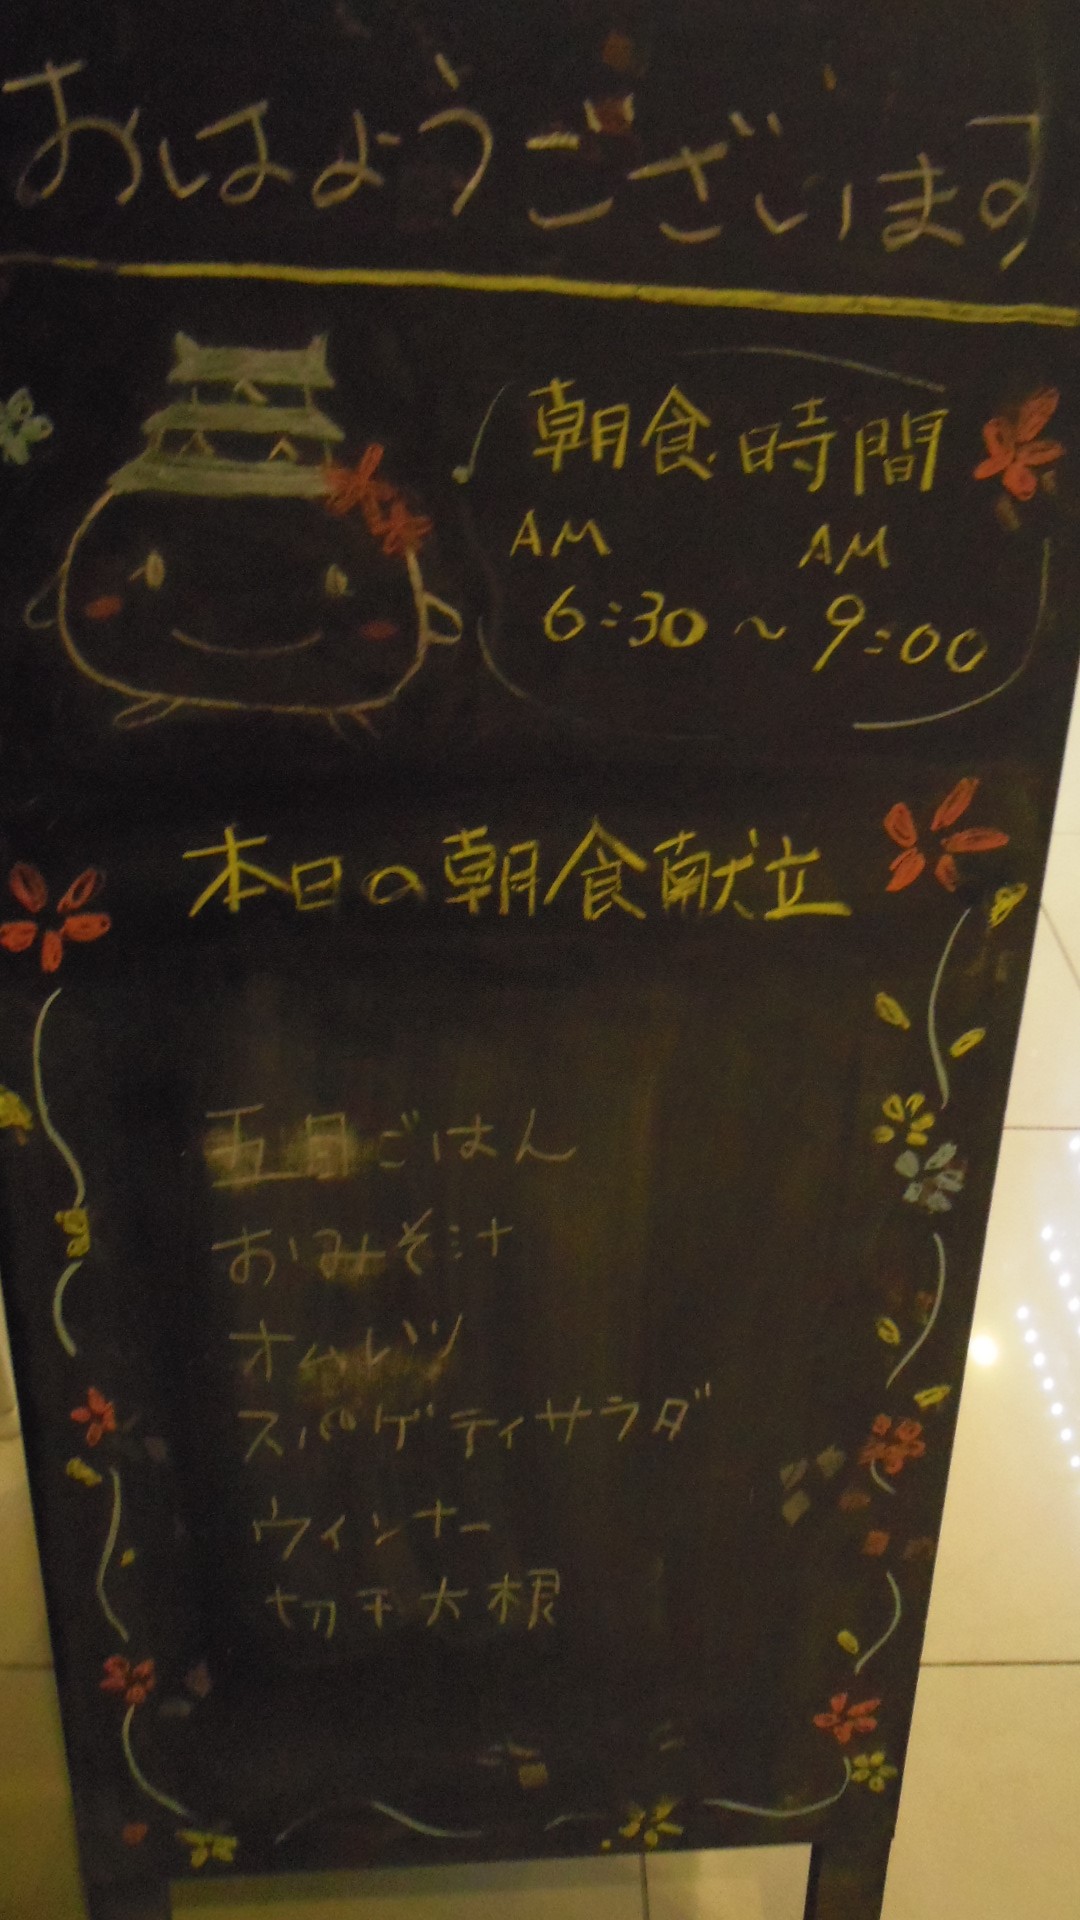 おはようございます
朝食時間
AM AM
6:30~9:00
本日の朝食献立
五目ごはん
おみそ汁
オムレツ
スパゲティサラダ
ウィンナー
切干大根